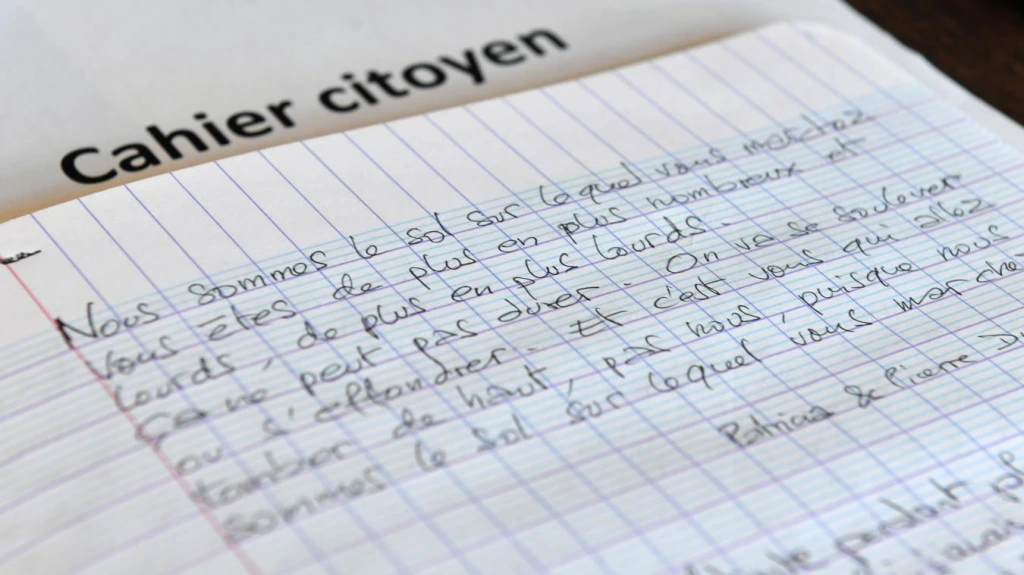 Cahier citoyen
Nous sommes le sol sur lequel vous marchez
vous êtes de plus en plus nombreux et
lourds, de plus en plus lourds.
Ça ne peut pas durer. On va se soulever
ou s'effondrer. Et c'est vous qui allez
tomber de haut, pas nous, puisque nous
sommes le sol sur lequel vous marchez
Patricia & Pierre
pendant